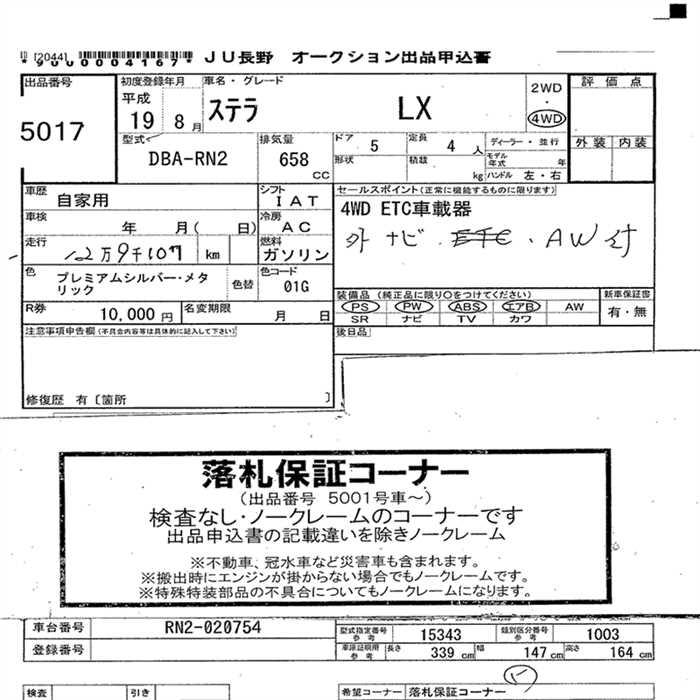 [2044]
*9000004167* JU長野 オークション出品申込書
出品番号 初度登録年月 車名・グレード 2WD 評価点
5017 平成 19 8月 ステラ LX ・ 4WD
型式 排気量 ドア 5 定員 4人 ディーラー・並行 外装 内装
DBA-RN2 658 CC 形状 積載 kg モデル年式 年
ハンドル 左・右
車歴 自家用 シフト IAT セールスポイント(正常に機能するものに限ります)
車検 年 月( 日) 冷房 AC 4WD ETC車載器
走行 12万9千107 km 燃料 ガソリン 外 ナビ・ETC・AW付
色 プレミアムシルバー・メタリック 色替 色コード 01G
装備品(純正品に限り○をつけてください) 新車保証書
R券 10,000円 名変期限 月 日 PS PW ABS エアB AW 有・無
SR ナビ TV カワ
注意事項申告欄(不具合内容等は具体的に記入して下さい) 後日品
修復歴 有〔箇所 〕
落札保証コーナー
(出品番号 5001号車～)
検査なし・ノークレームのコーナーです
出品申込書の記載違いを除きノークレーム
※不動車、冠水車など災害車も含まれます。
※搬出時にエンジンが掛からない場合でもノークレームです。
※特殊特装部品の不具合についてもノークレームになります。
車台番号 RN2-020754 型式指定番号 参考 15343 類別区分番号 参考 1003
登録番号 車庫証明用 参考 長さ 339 cm 幅 147 cm 高さ 164 cm
検査 引き 希望コーナー 落札保証コーナー